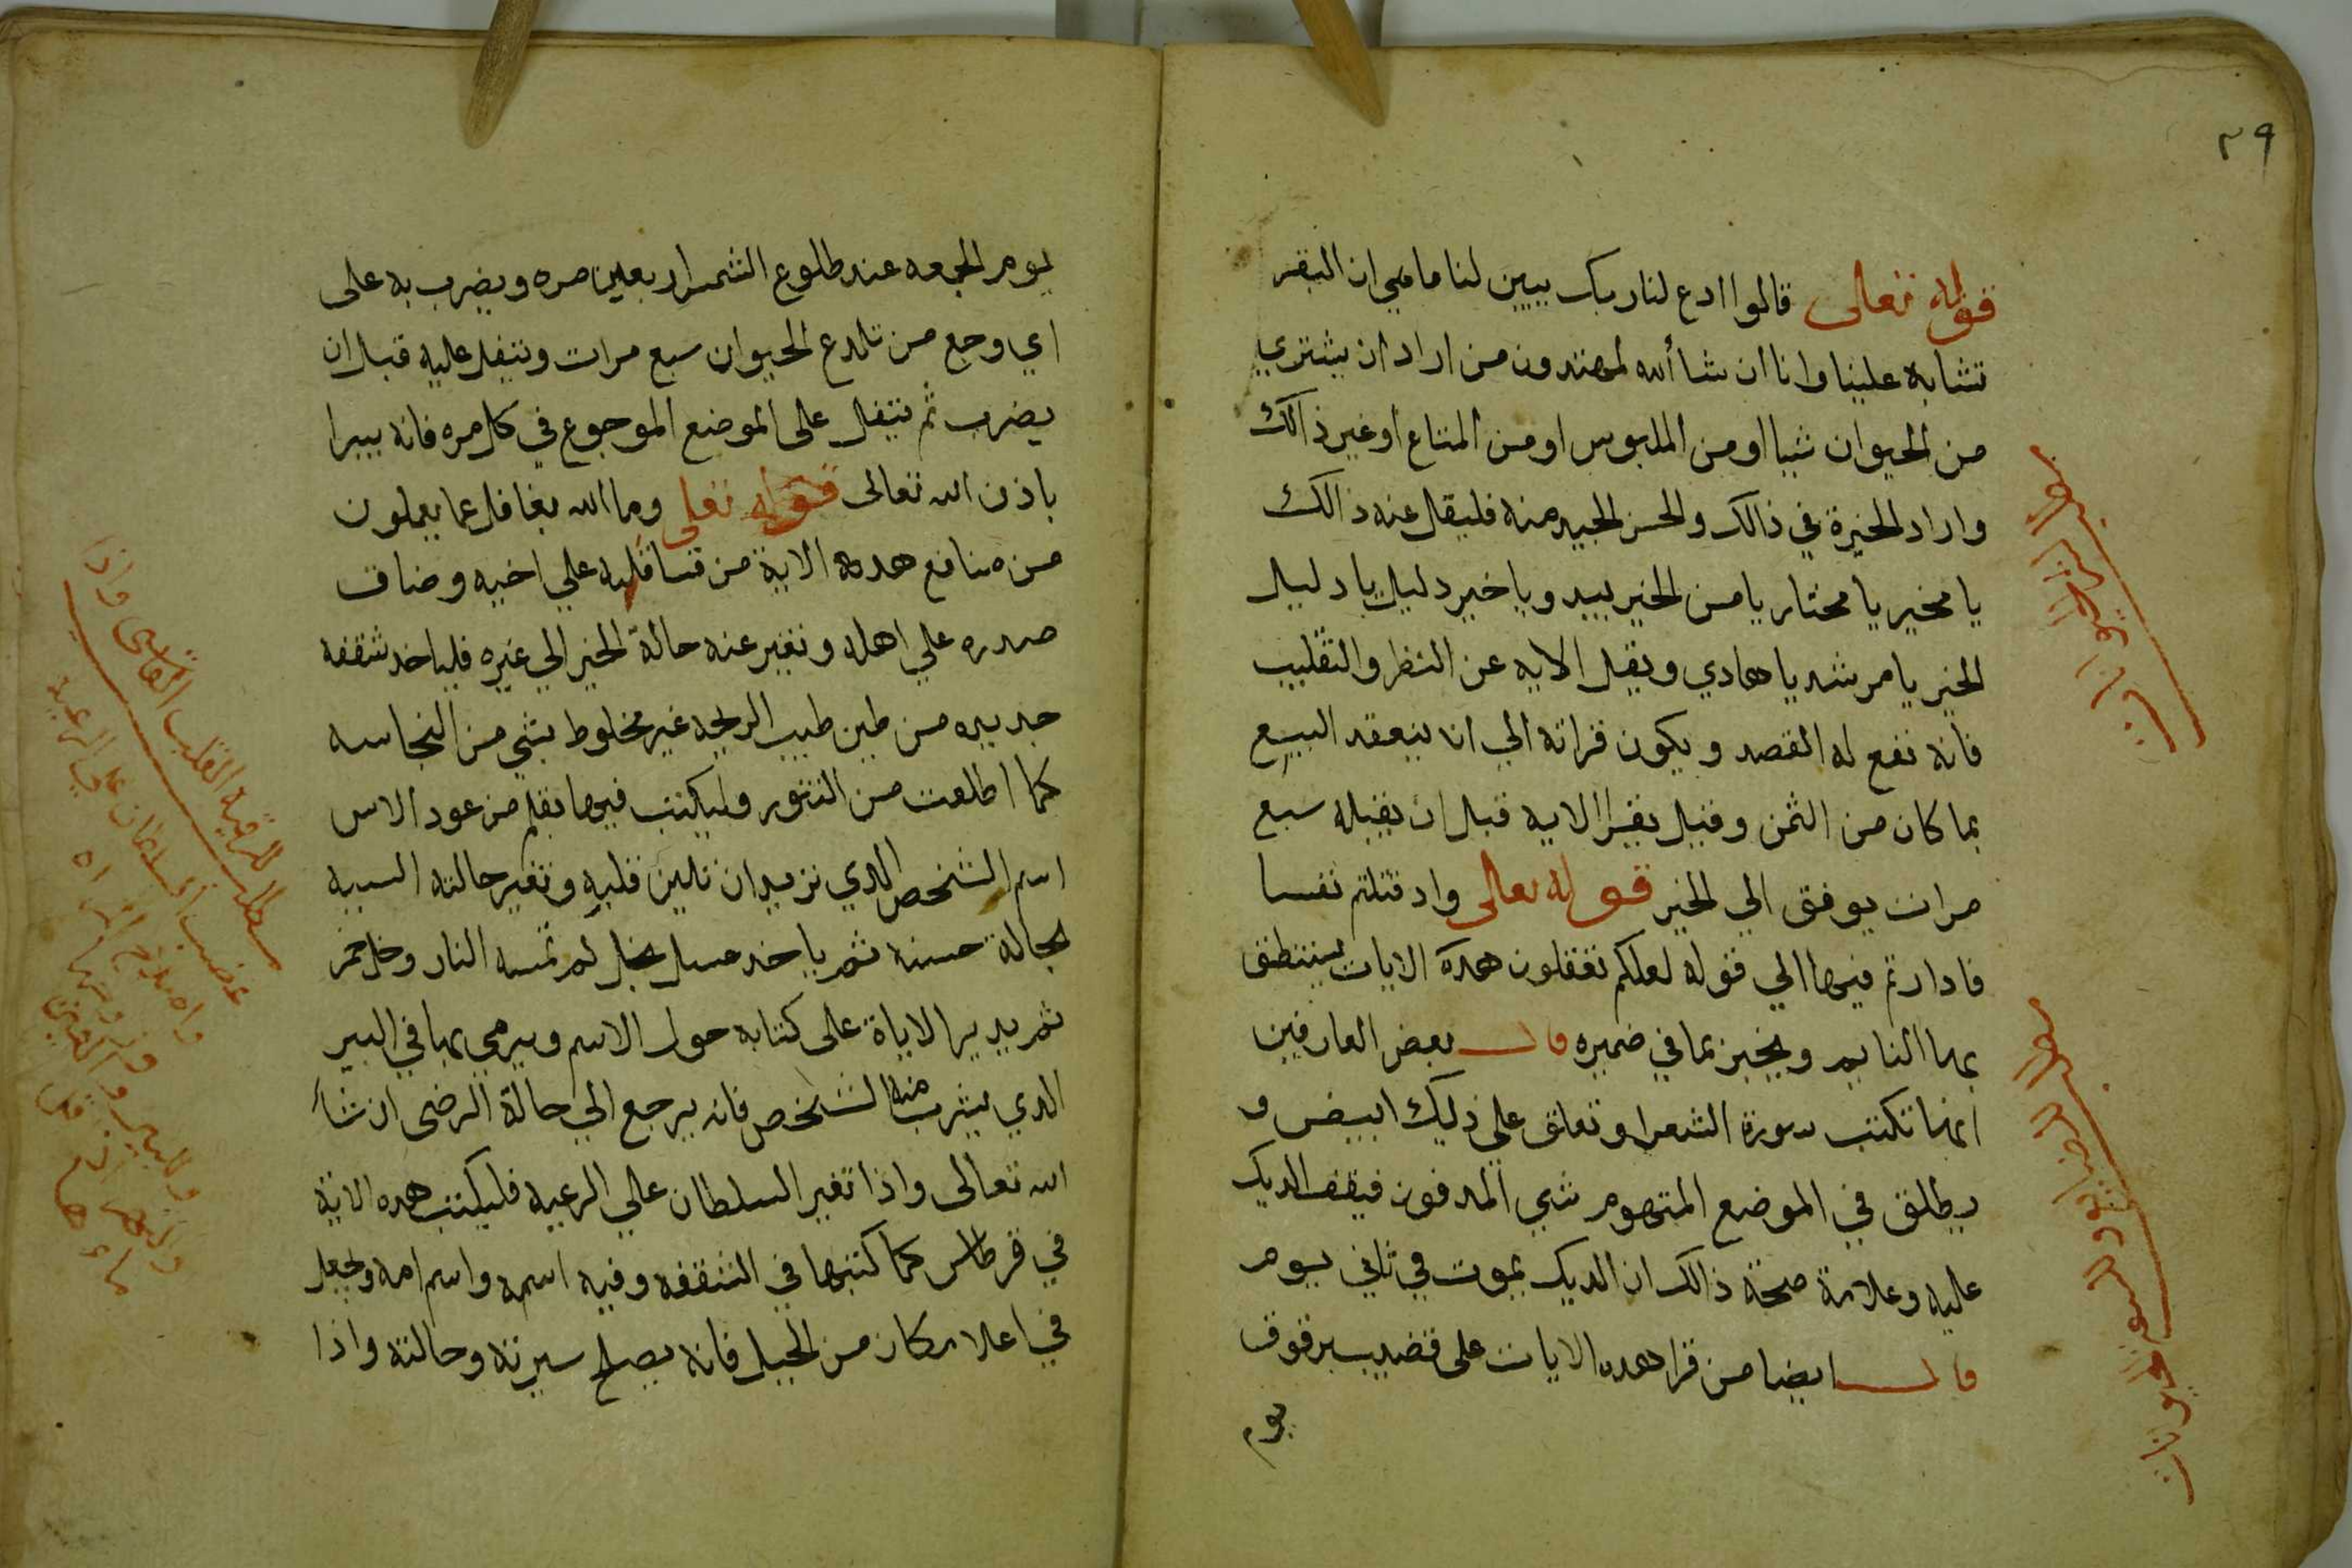 ٣٩
قوله تعالى قالوا ادع لنا ربك يبين لنا ما هي ان البقر
تشابه علينا وانا ان شا الله لمهتدون من اراد ان يشتري
من الحيوان شيا او من الملبوس او من المتاع او غير ذالك
واراد الخيرة في ذالك والحسن الجيد منه فليقل عنه ذالك
يا مخير يا مختار يا من الخير بيده ويا خير دليل يا دليل
الخير يا مرشد يا هادي ويقل الايه عن النظر والتقليب
فانه نفع له القصد ويكون قراته الي ان ينعقد البيع
بما كان من الثمن وقيل يقرا الايه قبل ان يقبله سبع
مرات يوفق الي الخير قوله تعالى واد قتلتم نفسا
فادارتم فيها الي قوله لعلكم تعقلون هده الايات يستنطق
بها النايم ويخبر بما في ضميره قال بعض العارفين
انها تكتب سورة الشعرا وتعلق على ديك ابيض و
يطلق في الموضع المتهوم شي المدفون فيقف الديك
عليه وعلامة صحة ذالك ان الديك يموت في ثاني يوم
قال ايضا من قرا هده الايات على قضيب برقوق
يوم
يوم الجمعه عند طلوع الشمس اربعين مره ويضرب به على
اي وجع من تلدع الحيوان سبع مرات ويتفل عليه قبل ان
يضرب ثم يتفل على الموضع الموجوع في كل مره فانه يبرا
باذن الله تعالى قوله تعلى وما الله بغافل عما يعملون
من منافع هده الاية من قسا قلبه علي اخيه وضاق
صدره علي اهله وتغير عنه حالة الخير الي غيره فلياخد شقفه
جديده من طين طيب الريحه غير مخلوط بشي من النجاسه
كما اطلعت من التنور وليكتب فيها بقلم من عود الاس
اسم الشخص الدي تريد ان تلين قلبه وتغير حالته السيه
بحالة حسنه ثم ياخد عسل نحل لم تمسه النار وخل خمر
ثم يدير الاياة على كتابه حول الاسم ويرمي بها في البير
الدي يشرب منه الشخص فانه يرجع الي حالة الرضى ان شا
الله تعالى واذا تغير السلطان علي الرعيه فليكتب هده الاية
في قرطاس كما كتبها في الشقفه وفيه اسمه واسم امه ويجعل
في اعلا مكان من الجبل فانه يصلح سيرته وحالته واذا